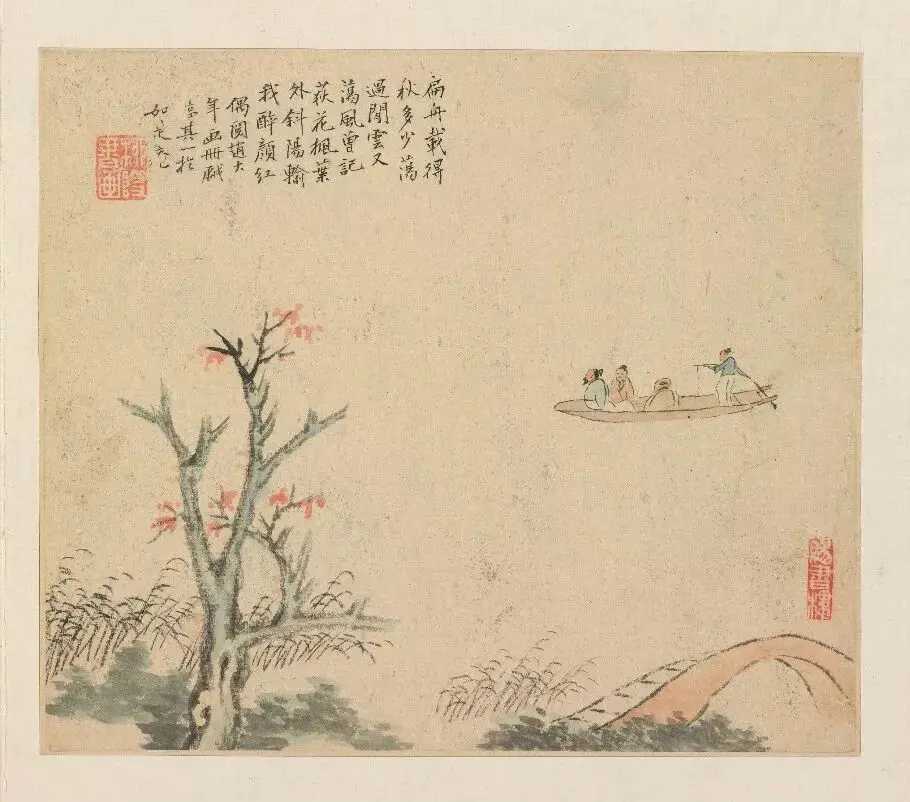 扁舟載得
秋多少蕩
過閒雲又
蕩風曾記
荻花楓葉
外斜陽輸
我醉顏紅
偶閱趙大
年画冊戲
其一於
如
書畫
書樓